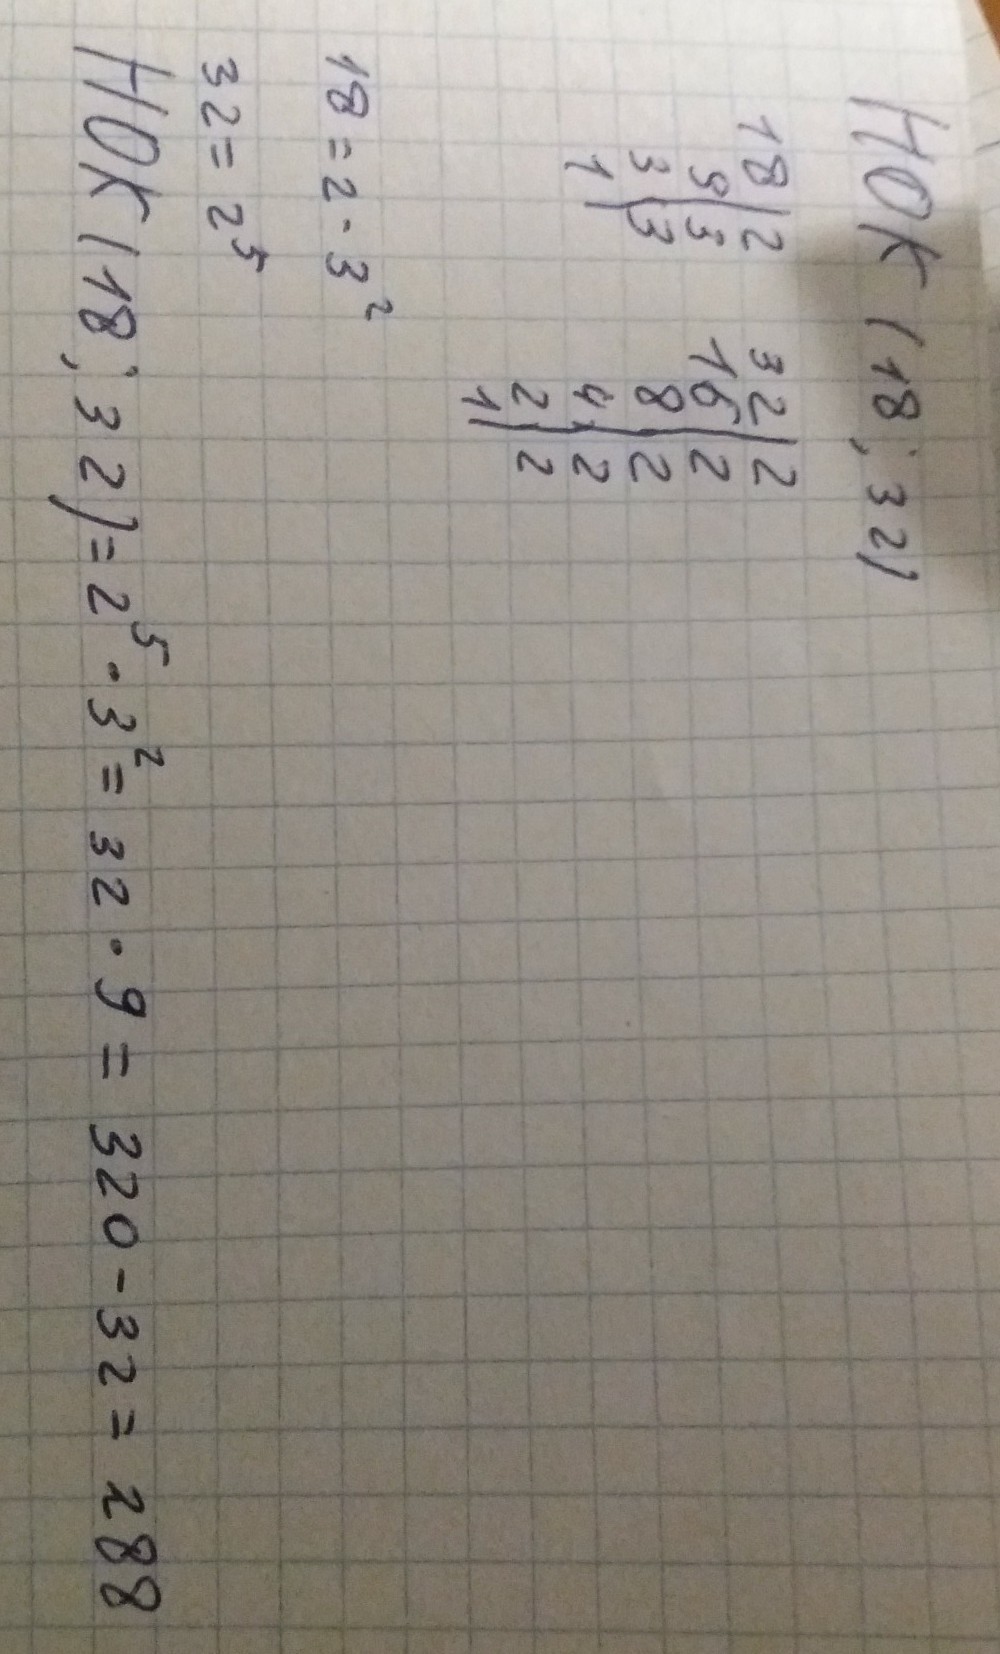 НОК (18; 32)
18|2 32|2
9|3 16|2
3|3 8|2
1| 4|2
2|2
1|
18 = 2 · 3²
32 = 2⁵
НОК (18; 32) = 2⁵ · 3² = 32 · 9 = 320 - 32 = 288